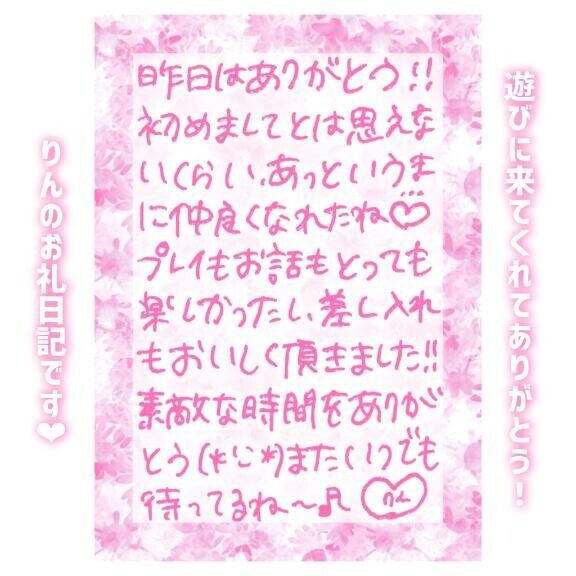 遊びに来てくれてありがとう!
昨日はありがとう!!
初めましてとは思えな
いくらい、あっというま
に仲良くなれたね♡
プレイもお話もとっても
楽しかったし、差し入れ
もおいしく頂きました!!
素敵な時間をありが
とう(*´`*)またいつでも
待ってるね〜♪
りん
りんのお礼日記です❤